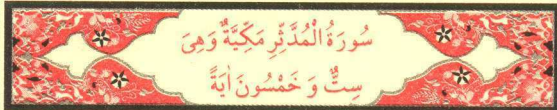 سُورَةُ الْمُدَّثِّرِ مَكِّيَّةٌ وَهِىَ
سِتٌّ وَ خَمْسُونَ اٰيَةً